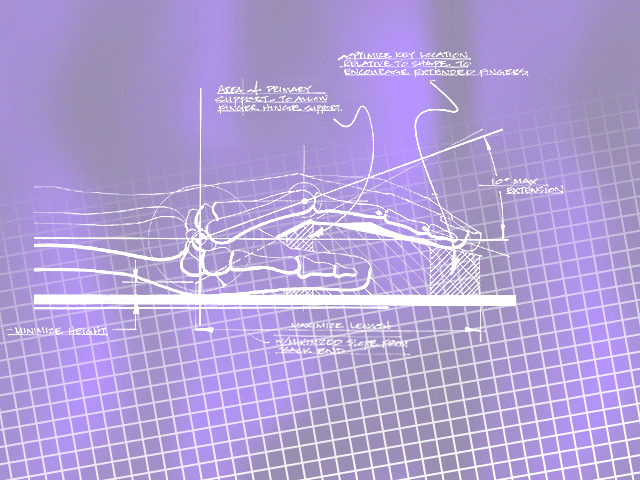 OPTIMIZE KEY LOCATION
RELATIVE TO SHAPE TO
ENCOURAGE EXTENDED FINGERS.
AREA of PRIMARY
SUPPORT - TO ALLOW
FINGER HINGE SUPPORT.
10° MAX
EXTENSION
MINIMIZE HEIGHT
MAXIMIZE LENGTH
MINIMIZED SLOPE FROM
BACK END